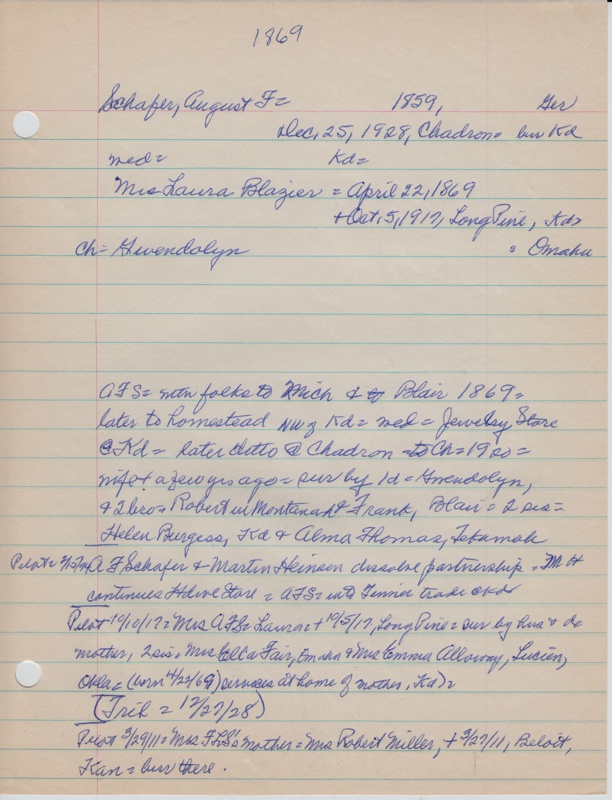 1869
Schafer, August F = 1859, Ger
Dec, 25, 1928, Chadron = bur Kd
med = Kd =
Mrs Laura Blazier = April 22, 1869
+ Oct. 5, 1917, Long Pine, Kd =
Ch = Gwendolyn = Omaha
AFS = wth folks to Mich & to Blair 1869 =
later to homestead NW of Kd = med = Jewelry Store
@ Kd = later ditto @ Chadron Ch = 1920 =
wife + a few yrs ago = sur by 1d = Gwendolyn,
& 2 bro = Robert in Montana & Frank, Blair = 2 sis =
Helen Burgess, Kd & Alma Thomas, Tekamah
Pilot = A F Schafer & Martin Heinsen dissolve partnership = M H
continues Hdwe Store = AFS = into Tinner trade @ Kd
Pilot 10/10/17 = Mrs AFS = Laura = + 10/5/17, Long Pine = sur by hus & da
mother, 2 sis, Mrs Etta Fair, Omaha & Mrs Emma Alloway, Lucien,
Okla = (born 4/22/69) services at home of mother, Kd) =
(Trib = 12/27/28)
Pilot 3/29/11 = Mrs mother = Mrs Robert Miller, + 3/27/11, Beloit,
Kan = bur there.